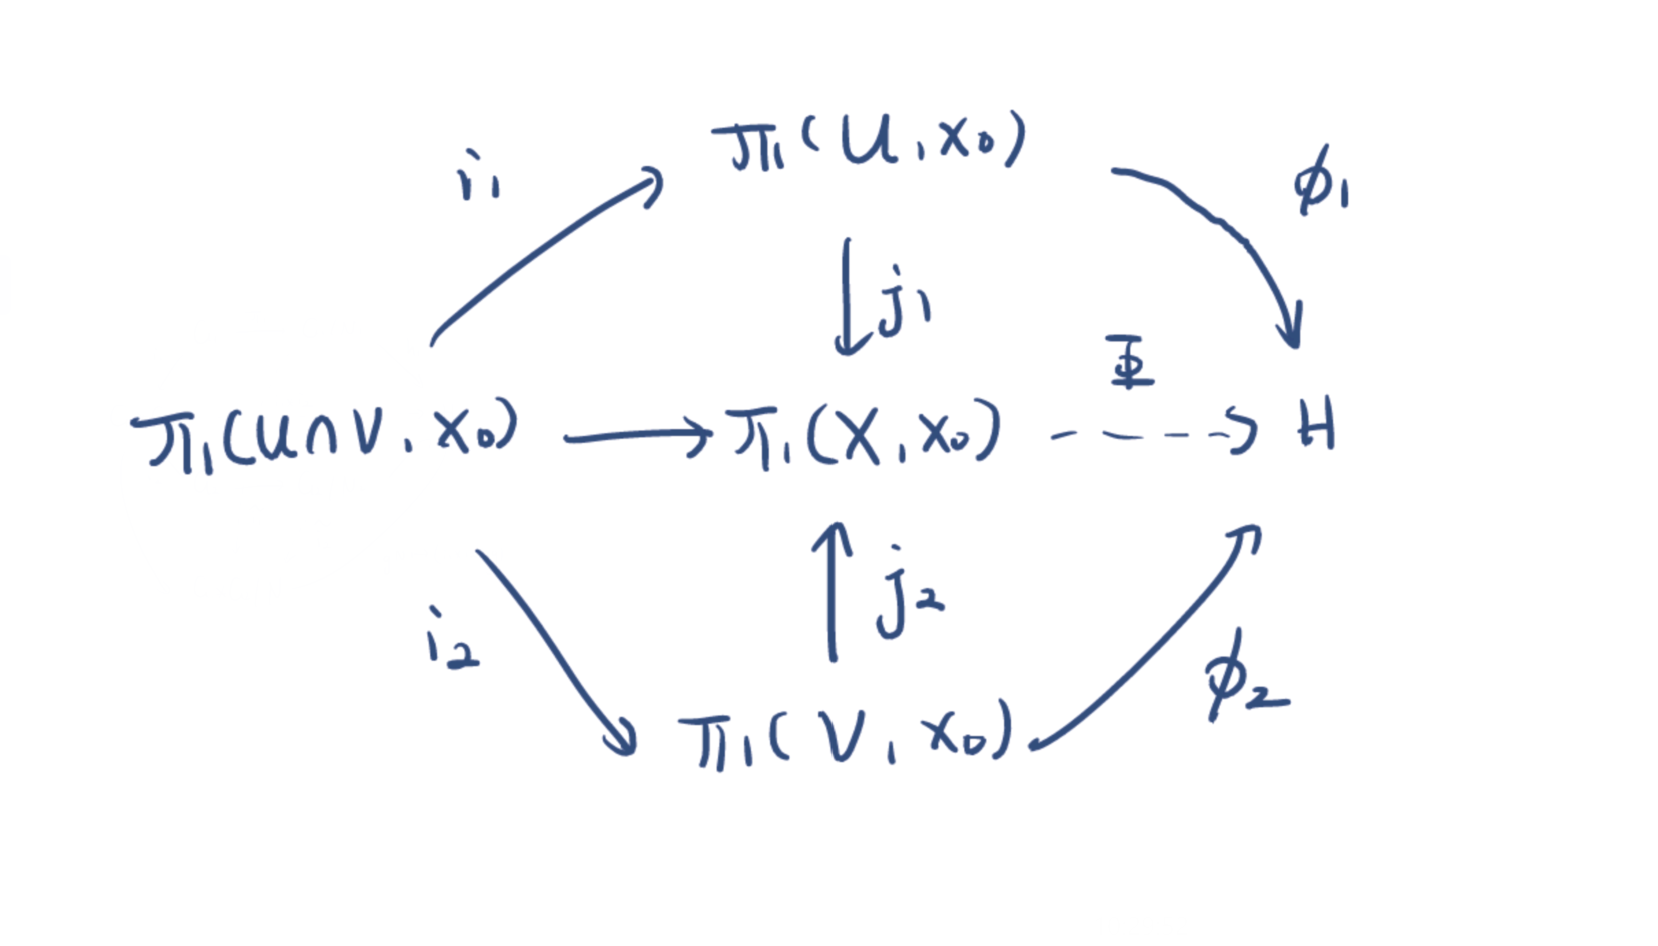 π₁(U, x₀)
i₁
ϕ₁
j₁
Φ
π₁(U∩V, x₀) → π₁(X, x₀) ⇢ H
j₂
i₂
ϕ₂
π₁(V, x₀)